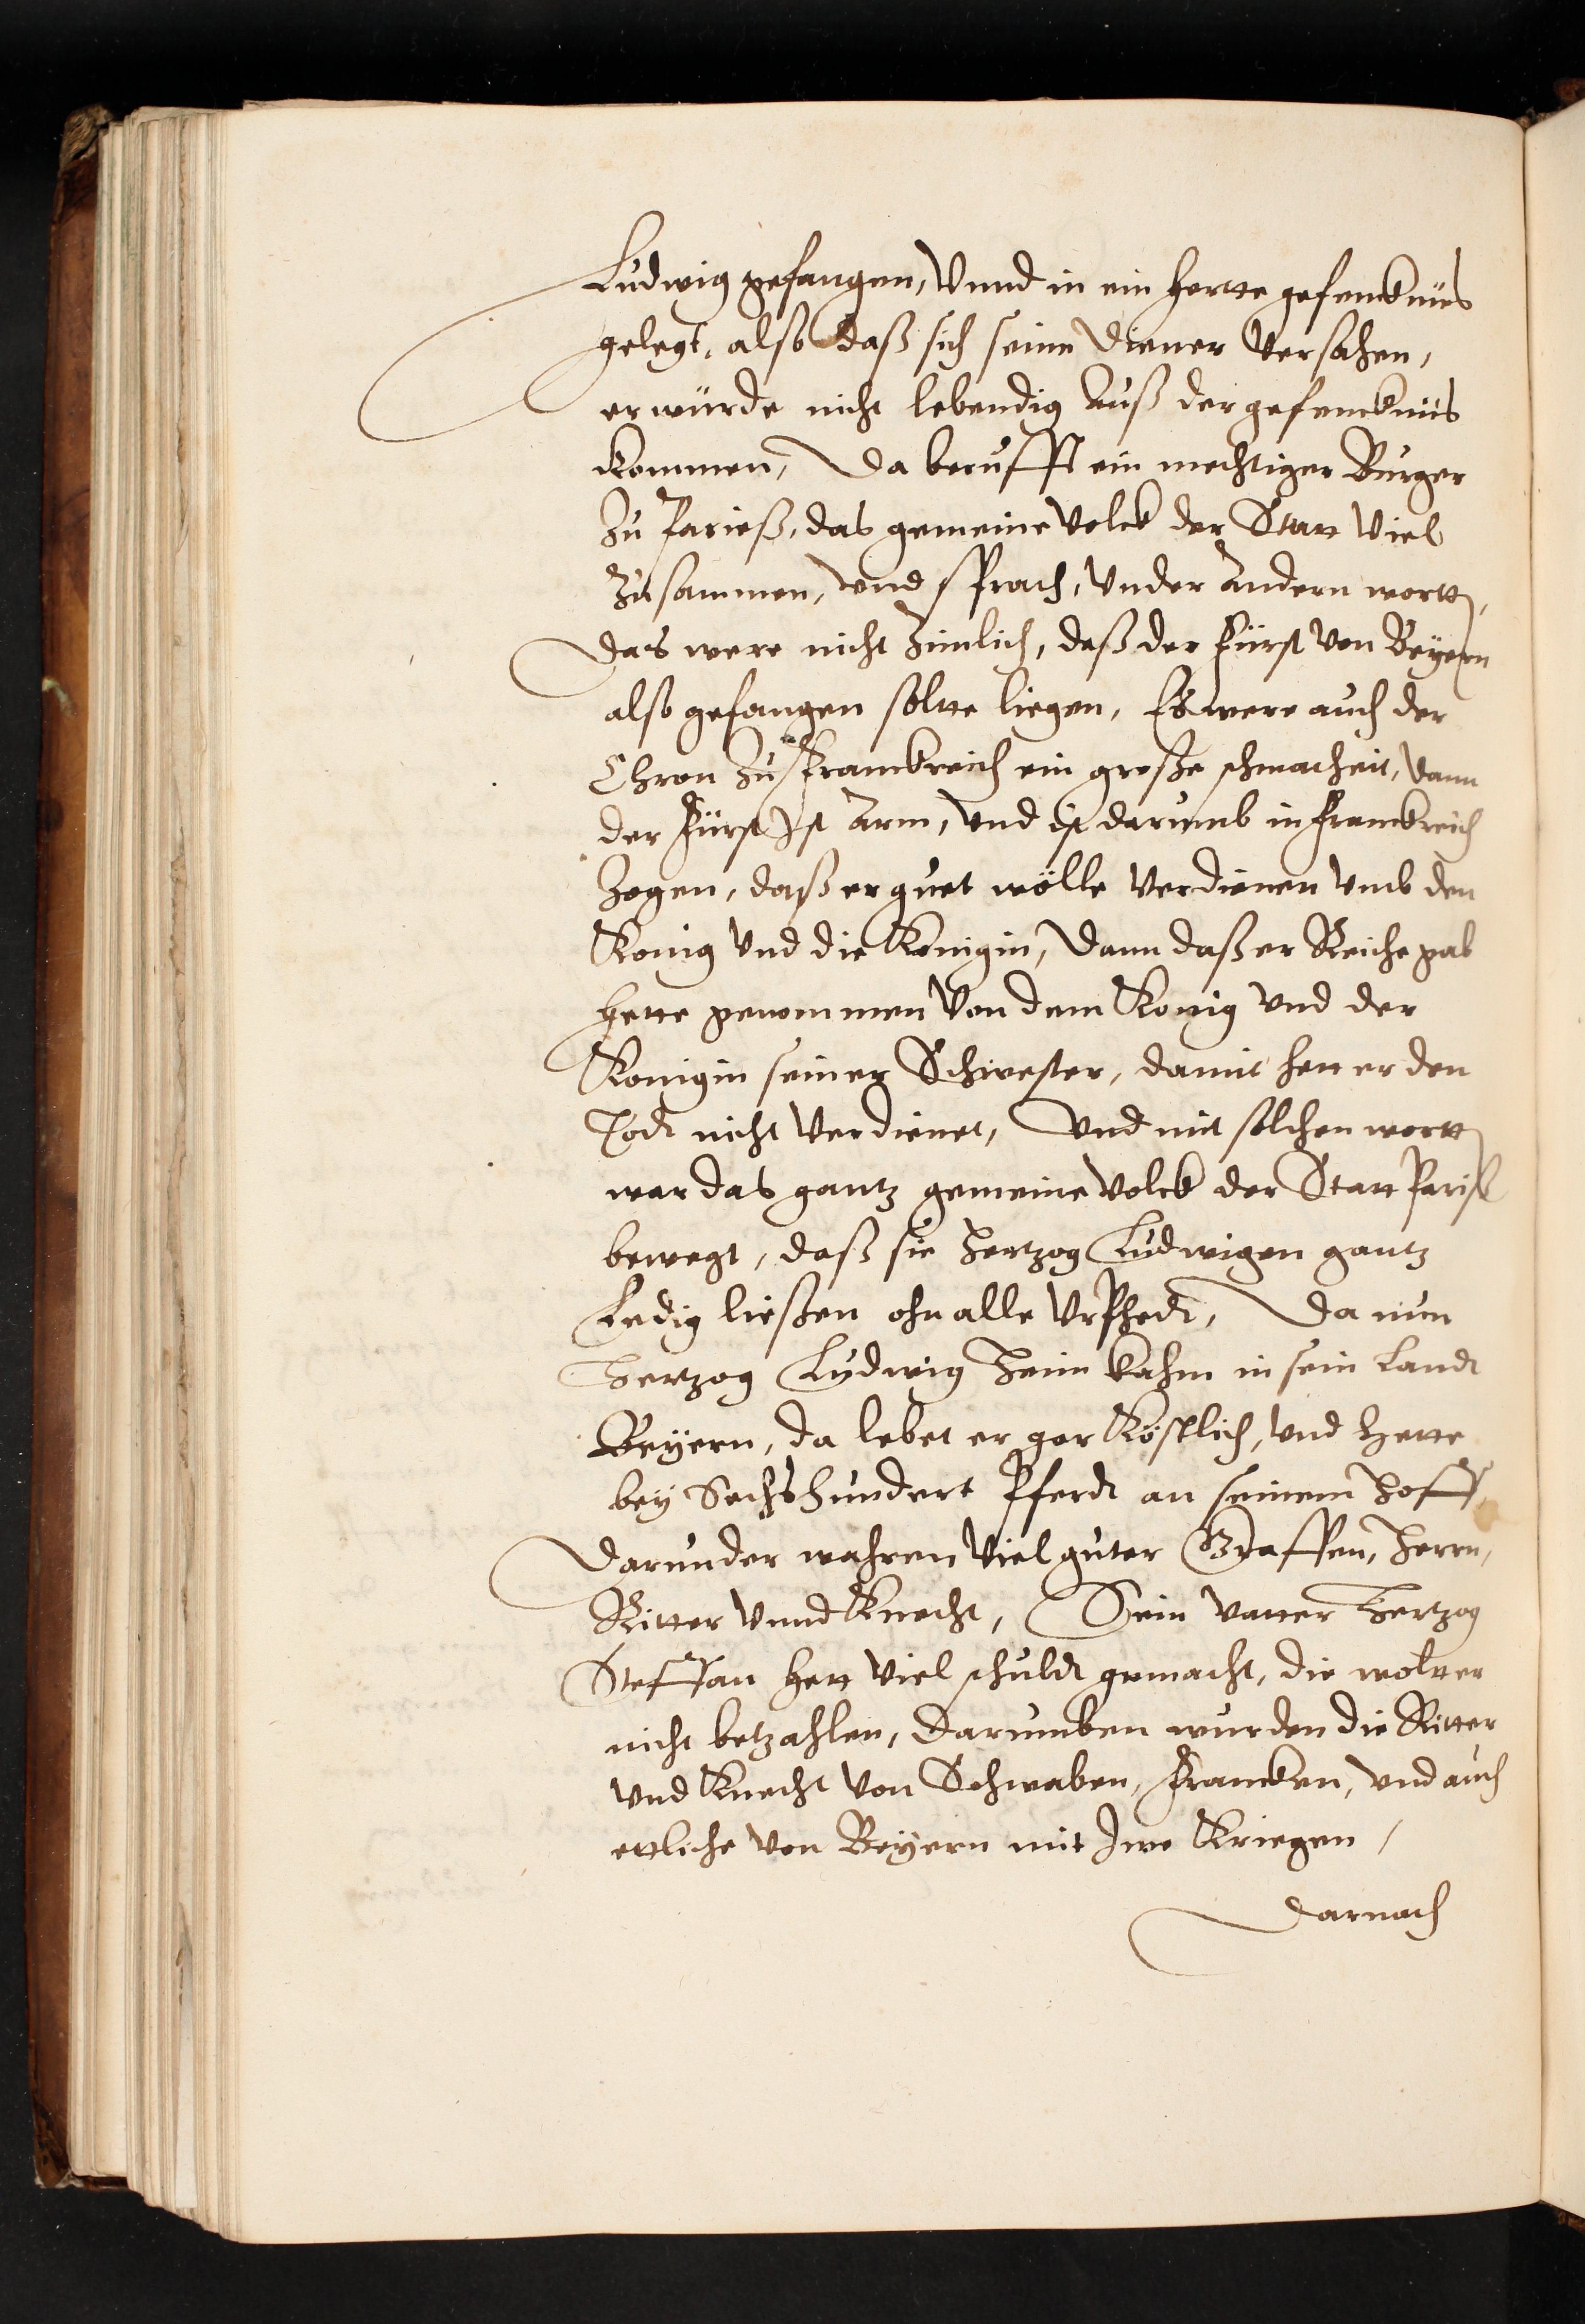 Ludwig gefangen, Vnnd in ein hertte gefencknüs
gelegt, also daß sich seine Diener Versahen,
er würde nicht lebendig Auß der gefencknüs
kommen, Da berufft ein mechtiger Burger
zu Parieß, das gemeine Volck der Statt Viel
zusammen, vnd sprach, Vnder Andern wortt,
Das were nicht zimlich, daß der Fürst von Beyern
also gefangen soltte liegen, Es were auch der
Chron zu Franckreich ein große schmacheit, dann
der Fürst Ist Arm, vnd ist darumb in Franckreich
zogen, daß er guet wölle Verdienen vmb den
König Vnd die Königin, Dann daß er Reiche gab
hette genommen Von dem König Vnd der
Königin seiner Schwester, damit hett er den
Todt nicht Verdienet, Vnd mit solchen wortt
war das gantz gemeine Volck der Statt Pariß
bewegt, daß sie Hertzog Ludwigen gantz
Ledig ließen ohn alle Vrphedt, Da nun
Hertzog Ludwig Heim kahm in sein Landt
Beyern, da lebet er gar Köstlich, vnd Hette
bey Sechshundert Pferdt an seinem Hoff,
Darunder wahren Viel guter Graffen, Herrn,
Ritter Vnnd Knecht, Sein Vatter Hertzog
Steffan hett Viel schuldt gemacht, die wolt er
nicht betzahlen, Darumben wurden die Ritter
Vnd Knecht Von Schwaben, Francken, vnd auch
ettliche von Beyern mit Ime Kriegen,
Darnach